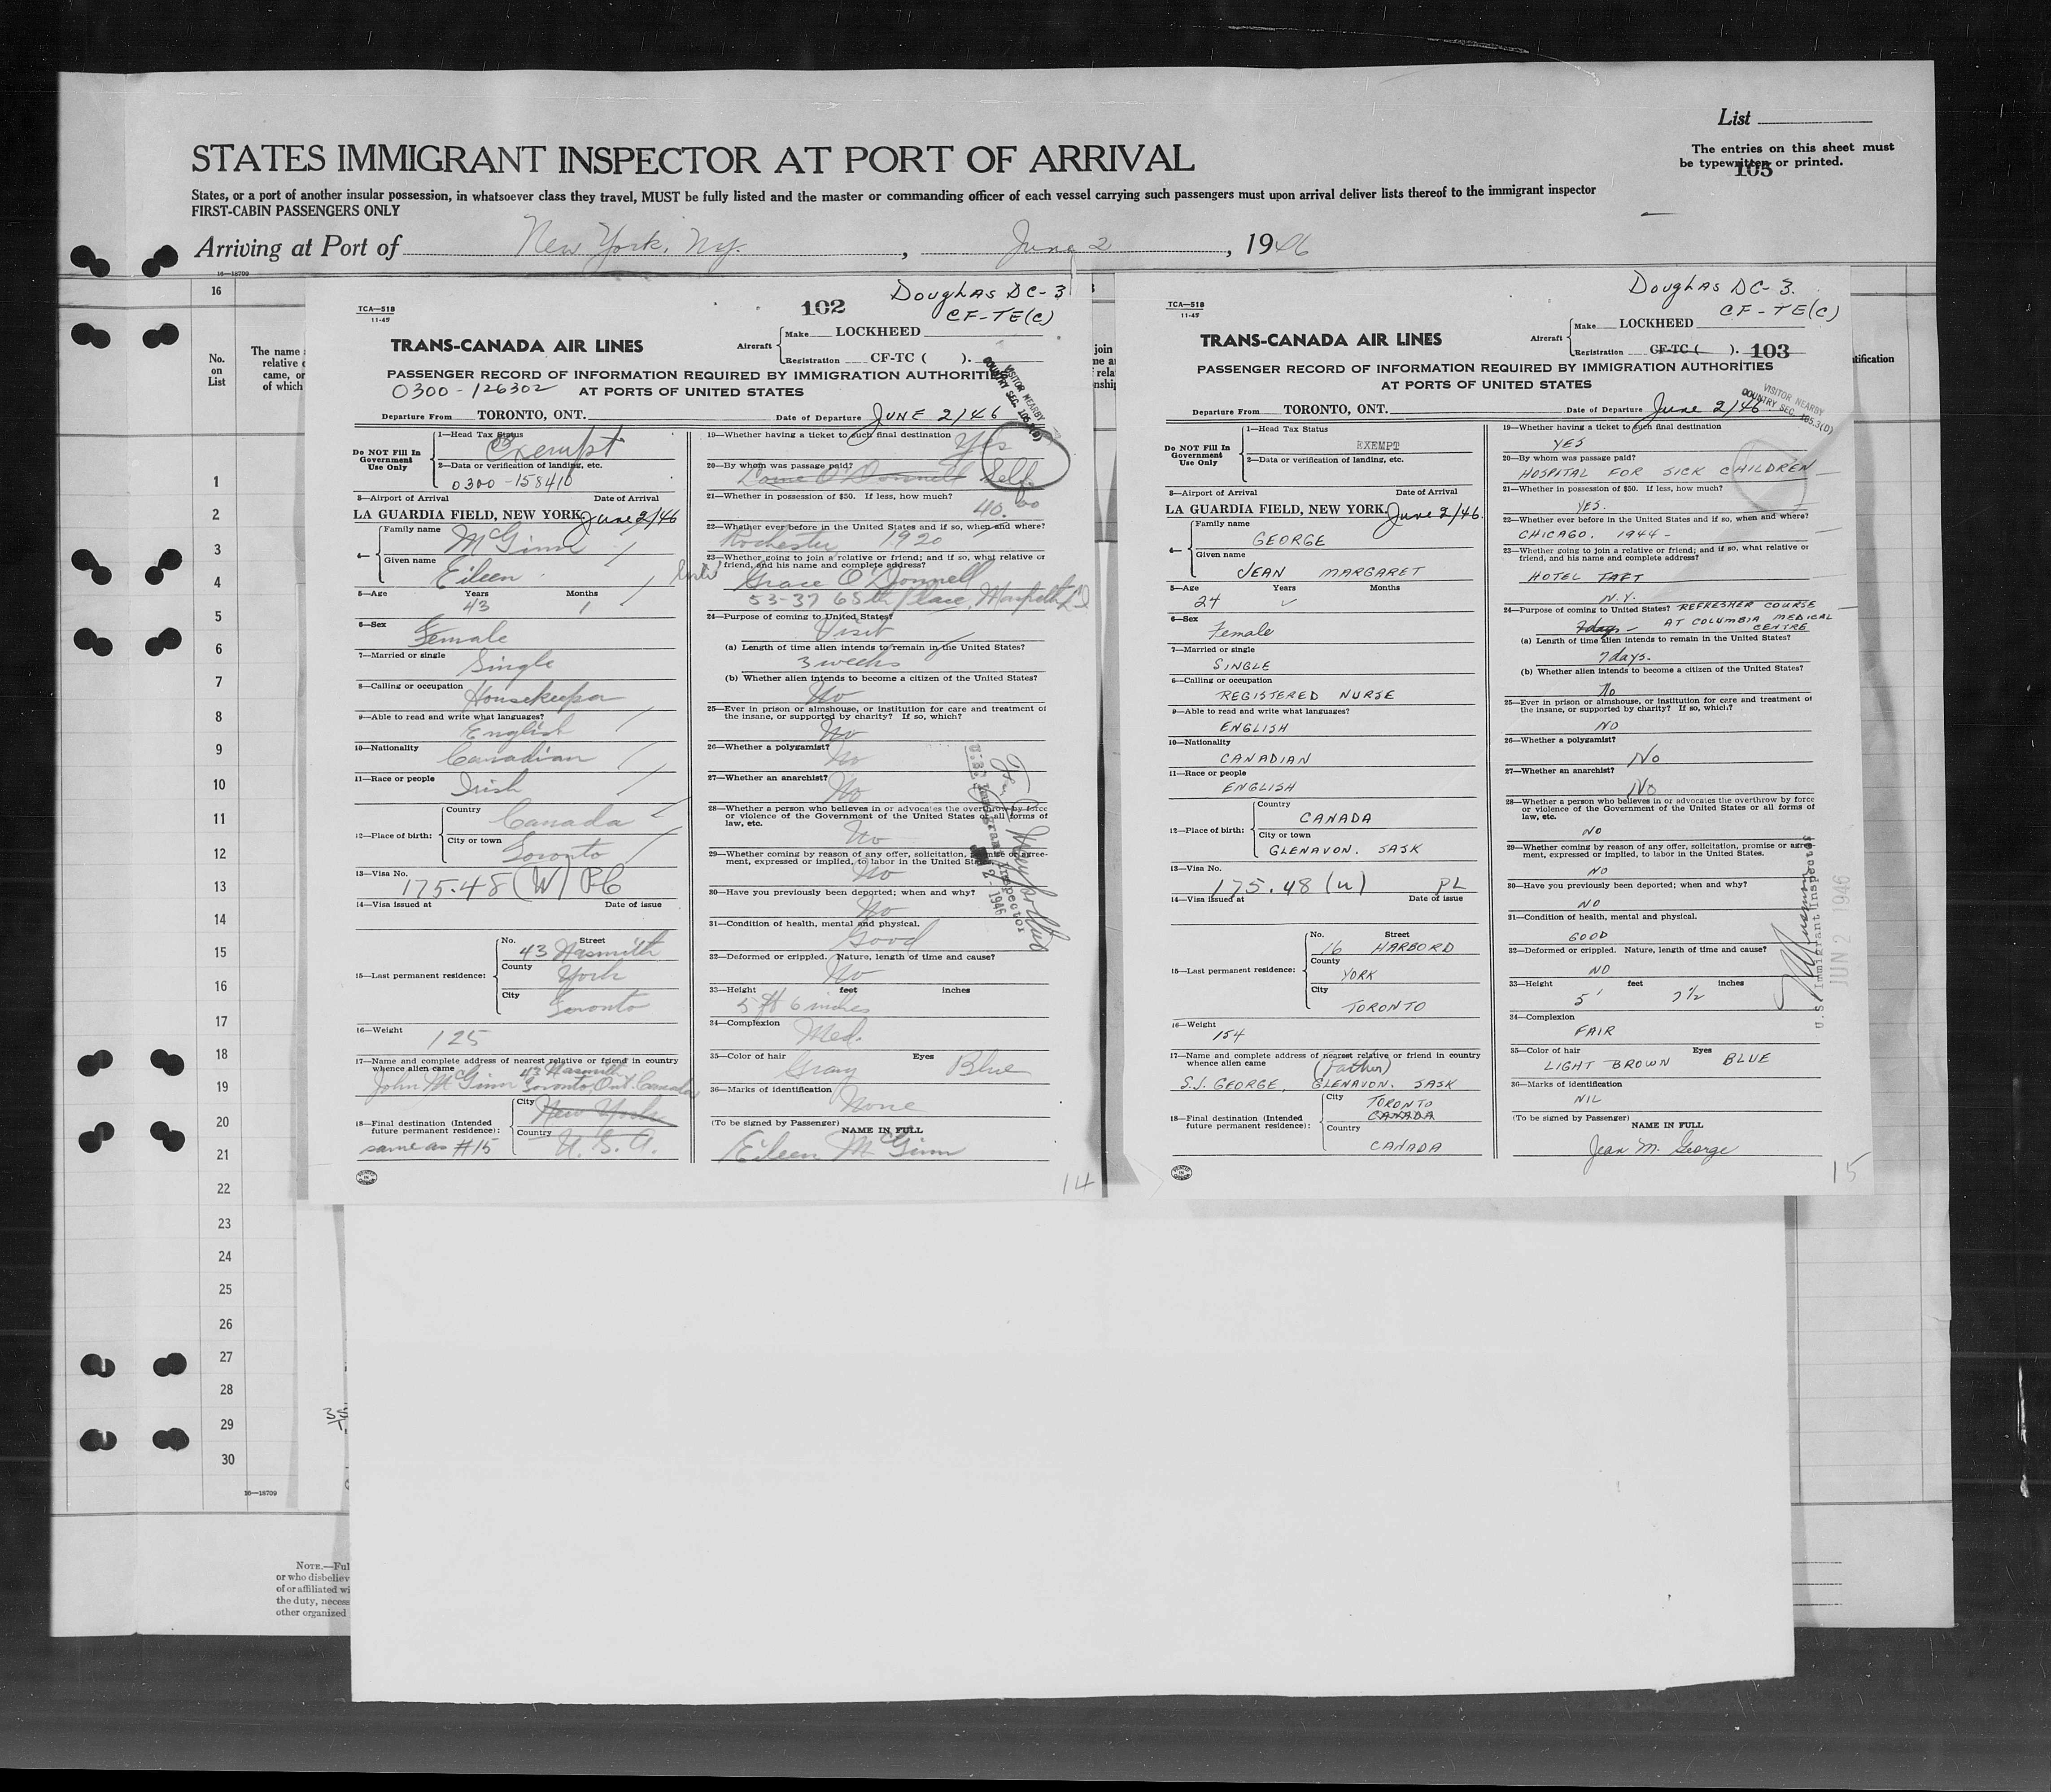 List
The entries on this sheet must
be typewritten or printed.
105
STATES IMMIGRANT INSPECTOR AT PORT OF ARRIVAL
States, or a port of another insular possession, in whatsoever class they travel, MUST be fully listed and the master or commanding officer of each vessel carrying such passengers must upon arrival deliver lists thereof to the immigrant inspector
FIRST-CABIN PASSENGERS ONLY
Arriving at Port of New York, Ny. , June 2 , 1946
16—18709
16
No.
on
List
The name
relative
came, or
of which
1
2
3
4
5
6
7
8
9
10
11
12
13
14
15
16
17
18
19
20
21
22
23
24
25
26
27
28
29
30
16—18709
NOTE.—Ful
or who disbeliev
of or affiliated wi
the duty, necess
other organized
TCA—518
11-45
102
Douglas DC-3
CF-TE(C)
TRANS-CANADA AIR LINES
Aircraft
Make LOCKHEED
Registration CF-TC ( ).
PASSENGER RECORD OF INFORMATION REQUIRED BY IMMIGRATION AUTHORITIES
0300-126302 AT PORTS OF UNITED STATES
VISITOR NEARBY
COUNTRY SEC. 165.3(D)
Departure From TORONTO, ONT. Date of Departure JUNE 2/46
Do NOT Fill In
Government
Use Only
1—Head Tax Status
Exempt
2—Data or verification of landing, etc.
0300-158410
3—Airport of Arrival Date of Arrival
LA GUARDIA FIELD, NEW YORK. June 2/46
4— Family name
McGinn
Given name
Eileen
5—Age Years Months
43 1
6—Sex
Female
7—Married or single
Single
8—Calling or occupation
Housekeeper
9—Able to read and write what languages?
English
10—Nationality
Canadian
11—Race or people
Irish
12—Place of birth:
Country
Canada
City or town
Toronto
13—Visa No.
175.48 (W) PL
14—Visa issued at Date of issue
15—Last permanent residence:
No. Street
43 Nasmith
County
York
City
Toronto
16—Weight
125
17—Name and complete address of nearest relative or friend in country
whence alien came 43 Nasmith
John McGinn Toronto, Ont. Canada
18—Final destination (Intended
future permanent residence):
same as #15
City
New York
Country
U.S.A.
19—Whether having a ticket to such final destination
Yes
20—By whom was passage paid?
O'Donnell Self
21—Whether in possession of $50. If less, how much?
40.00
22—Whether ever before in the United States and if so, when and where?
Rochester 1920
23—Whether going to join a relative or friend; and if so, what relative or
friend, and his name and complete address?
Grace O'Donnell
53-37 65th Place, Maspeth L.I.
24—Purpose of coming to United States?
Visit
(a) Length of time alien intends to remain in the United States?
3 weeks
(b) Whether alien intends to become a citizen of the United States?
No
25—Ever in prison or almshouse, or institution for care and treatment of
the insane, or supported by charity? If so, which?
No
26—Whether a polygamist?
No
27—Whether an anarchist?
No
28—Whether a person who believes in or advocates the overthrow by force
or violence of the Government of the United States or all forms of
law, etc.
No
29—Whether coming by reason of any offer, solicitation, promise or agree-
ment, expressed or implied, to labor in the United States.
No
30—Have you previously been deported; when and why?
No
31—Condition of health, mental and physical.
Good
32—Deformed or crippled. Nature, length of time and cause?
No
33—Height feet inches
5 ft 6 inches
34—Complexion
Med.
35—Color of hair Eyes
Gray Blue
36—Marks of identification
None
(To be signed by Passenger)
NAME IN FULL
Eileen McGinn
U.S. Immigrant Inspector
2-1946
14
TCA—518
11-45
Douglas DC-3.
CF-TE(C)
TRANS-CANADA AIR LINES
Aircraft
Make LOCKHEED
Registration CF-TC ( ). 103
PASSENGER RECORD OF INFORMATION REQUIRED BY IMMIGRATION AUTHORITIES
AT PORTS OF UNITED STATES
VISITOR NEARBY
COUNTRY SEC. 165.3(D)
Departure From TORONTO, ONT. Date of Departure June 2/46
Do NOT Fill In
Government
Use Only
1—Head Tax Status
EXEMPT
2—Data or verification of landing, etc.
3—Airport of Arrival Date of Arrival
LA GUARDIA FIELD, NEW YORK. June 2/46.
4— Family name
GEORGE
Given name
JEAN MARGARET
5—Age Years Months
24
6—Sex
Female
7—Married or single
SINGLE
8—Calling or occupation
REGISTERED NURSE
9—Able to read and write what languages?
ENGLISH
10—Nationality
CANADIAN
11—Race or people
ENGLISH
12—Place of birth:
Country
CANADA
City or town
GLENAVON. SASK
13—Visa No.
175.48 (u) PL
14—Visa issued at Date of issue
15—Last permanent residence:
No. Street
16 HARBORD
County
YORK
City
TORONTO
16—Weight
154
17—Name and complete address of nearest relative or friend in country
whence alien came (Father)
S.J. GEORGE, GLENAVON. SASK
18—Final destination (Intended
future permanent residence):
City
TORONTO
CANADA
Country
CANADA
19—Whether having a ticket to such final destination
YES
20—By whom was passage paid?
HOSPITAL FOR SICK CHILDREN
21—Whether in possession of $50. If less, how much?
YES.
22—Whether ever before in the United States and if so, when and where?
CHICAGO. 1944 -
23—Whether going to join a relative or friend; and if so, what relative or
friend, and his name and complete address?
HOTEL TAFT
N.Y.
24—Purpose of coming to United States? REFRESHER COURSE
7 days - AT COLUMBIA MEDICAL
CENTRE
(a) Length of time alien intends to remain in the United States?
7 days.
(b) Whether alien intends to become a citizen of the United States?
No
25—Ever in prison or almshouse, or institution for care and treatment of
the insane, or supported by charity? If so, which?
NO
26—Whether a polygamist?
No
27—Whether an anarchist?
No
28—Whether a person who believes in or advocates the overthrow by force
or violence of the Government of the United States or all forms of
law, etc.
NO
29—Whether coming by reason of any offer, solicitation, promise or agree-
ment, expressed or implied, to labor in the United States.
NO
30—Have you previously been deported; when and why?
NO
31—Condition of health, mental and physical.
GOOD
32—Deformed or crippled. Nature, length of time and cause?
NO
33—Height feet inches
5' 7½
34—Complexion
FAIR
35—Color of hair Eyes
LIGHT BROWN BLUE
36—Marks of identification
NIL
(To be signed by Passenger)
NAME IN FULL
Jean M. George
U.S. Immigrant Inspector
JUN 2 1946
15